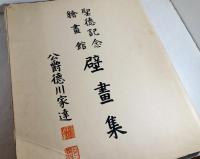 聖德記念
繪畫館
壁畫集
公爵德川家達